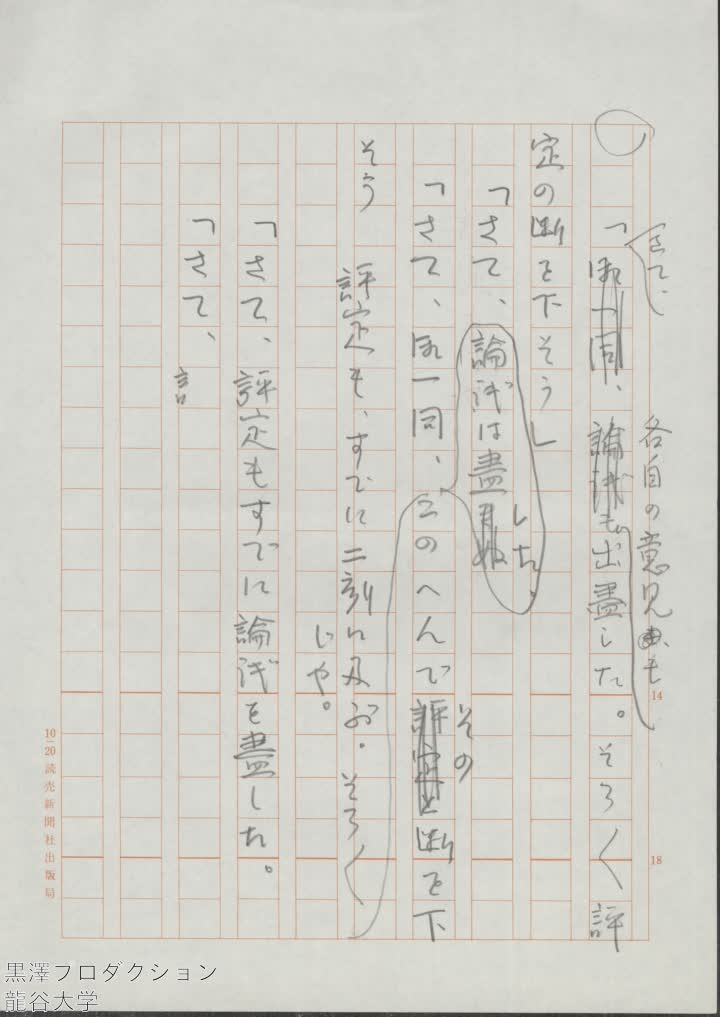 さて、
各自の意見も
「一同、論議も出盡した。そろ〱評
定の断を下そう」
「さて、論議は盡した。
「さて、一同、このへんでその断を下
そう
評定も、すでに二刻に及ぶ。そろ〱
じゃ。
「さて、評定もすでに論議を盡した。
「さて、言
14
18
10-20 読売新聞社出版局
黒澤プロダクション
龍谷大学